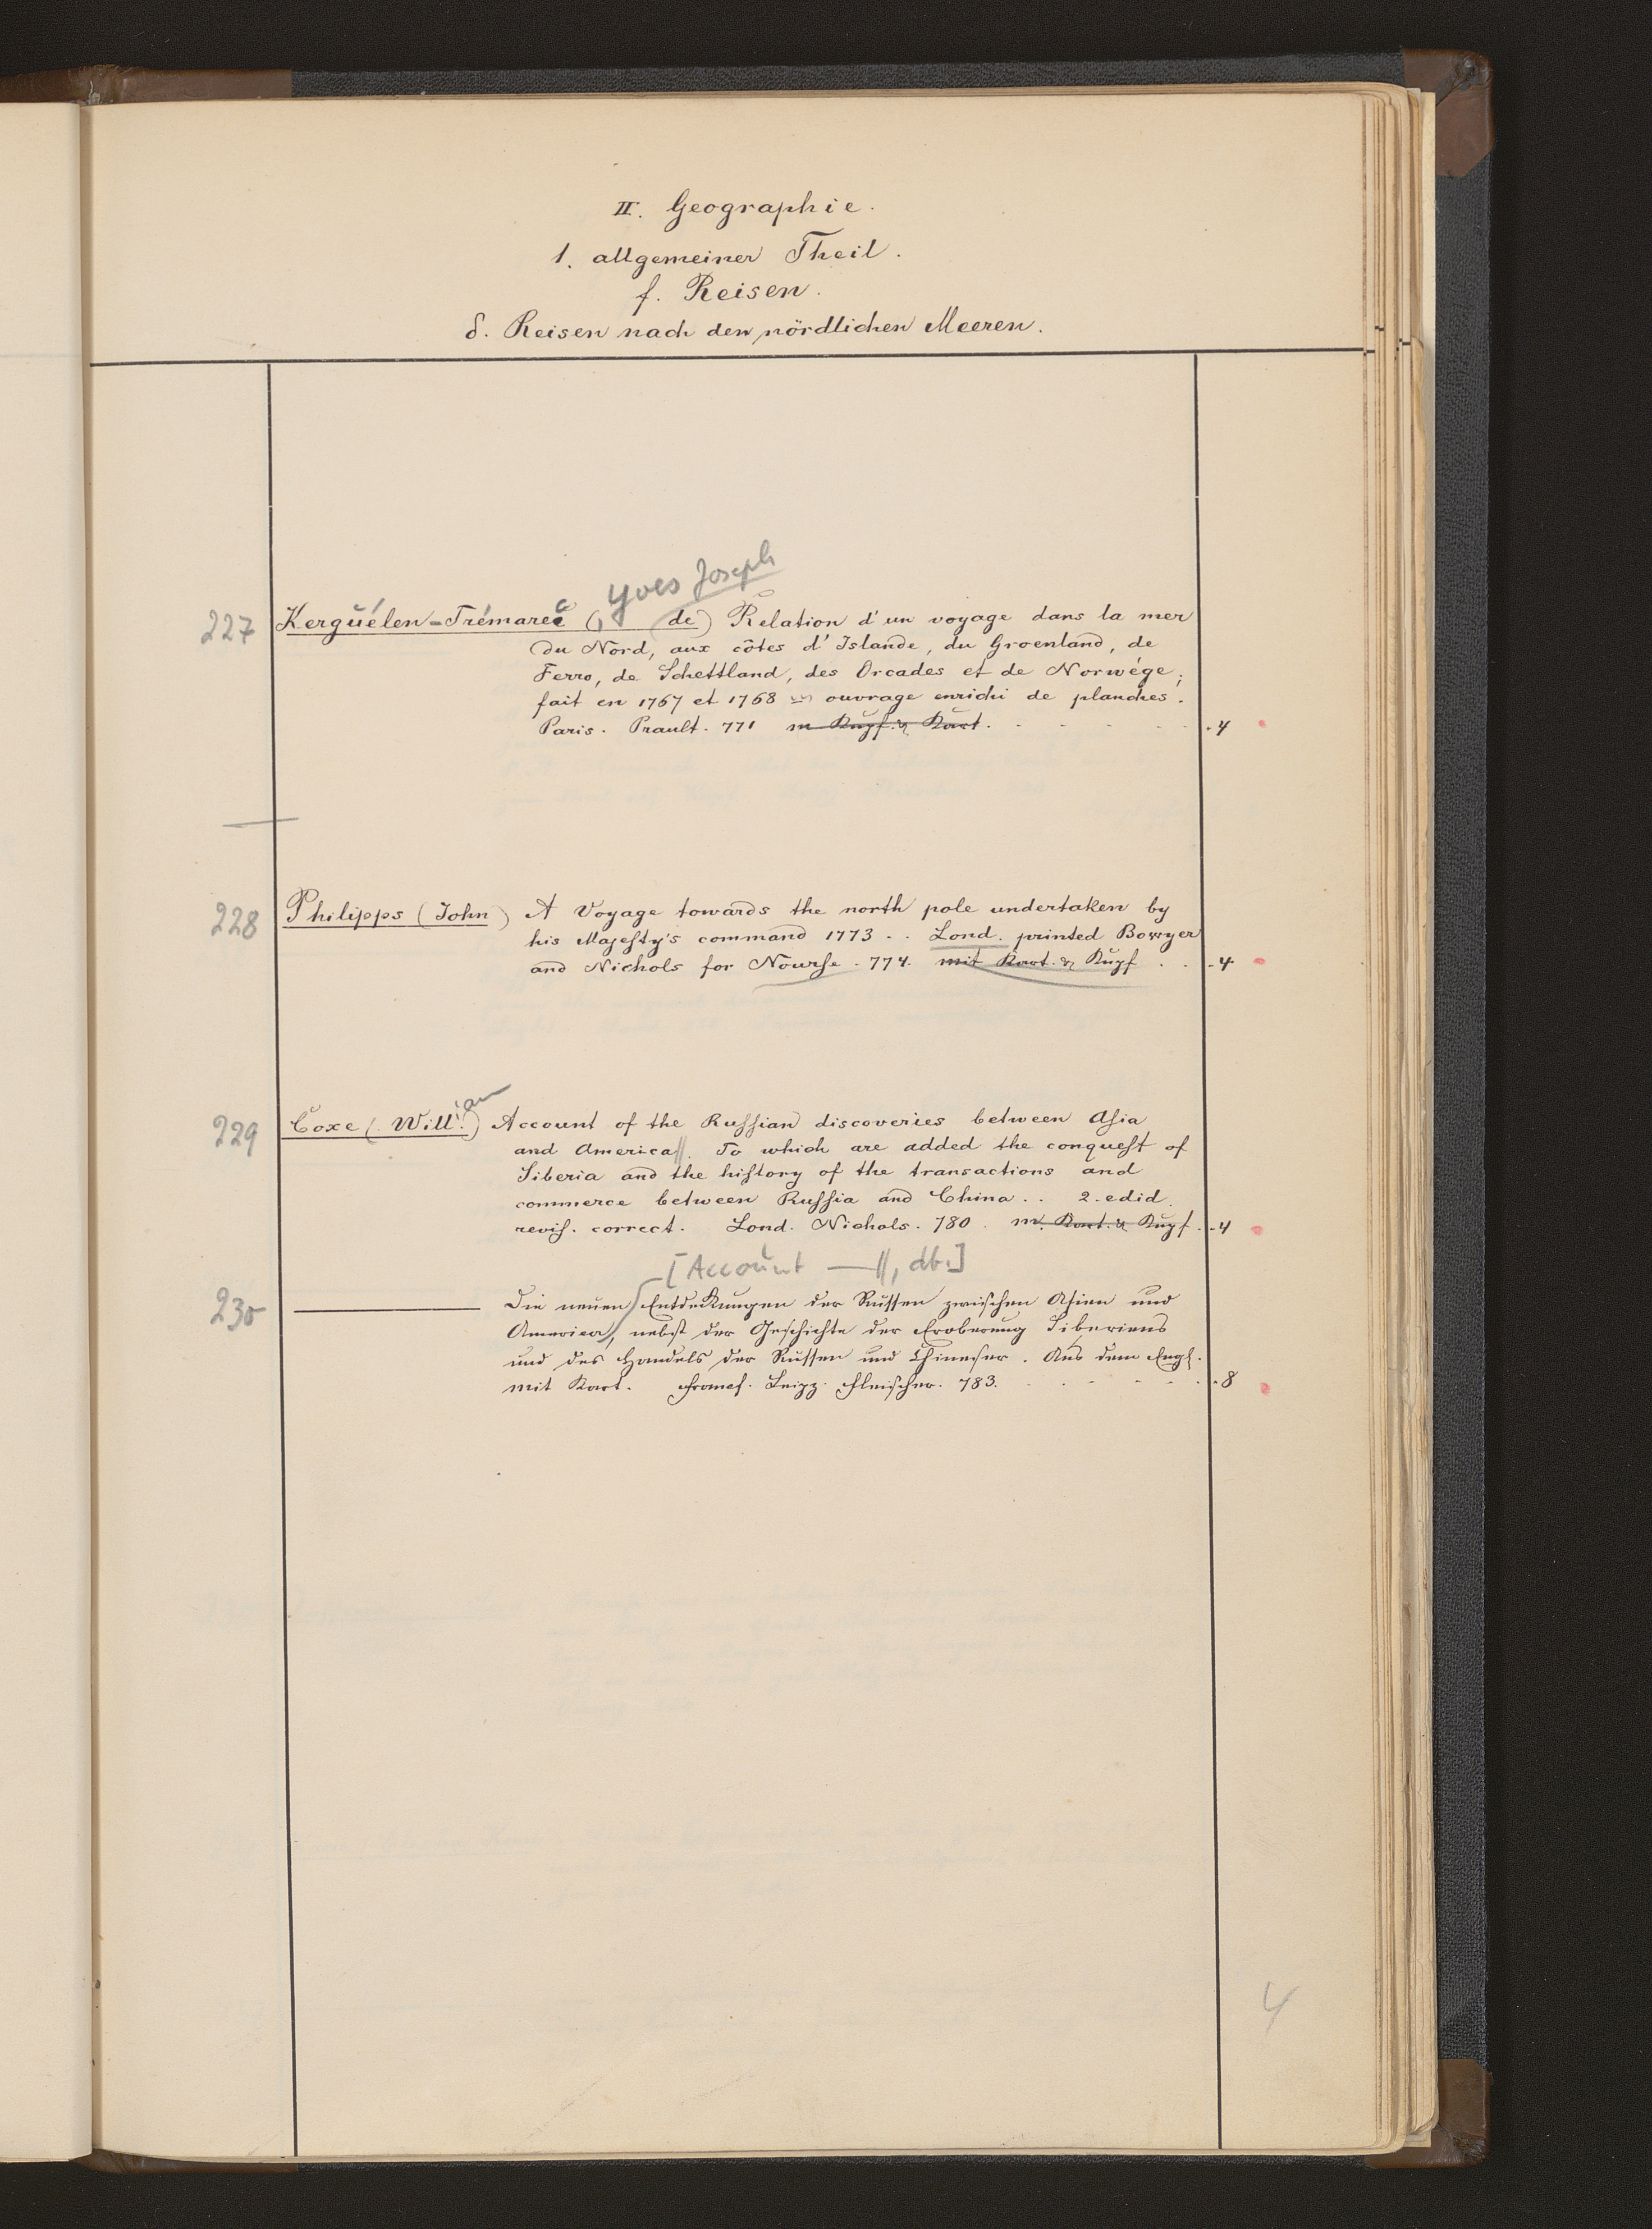 II. Geographie.
1. allgemeiner Theil.
f. Reisen.
δ. Reisen nach den nördlichen Meeren.
Yves Joseph
227 Kerguélen-Trémarec (, de) Relation d'un voyage dans la mer
du Nord, aux côtes d'Islande, du Groenland, de
Ferro, de Schettland, des Orcades et de Norwége;
fait en 1767 et 1768 ouvrage enrichi de planches.
Paris. Prault. 771 m Kupf. & Kart. . 4
228 Philipps (John) A Voyage towards the north pole undertaken by
his Majeſty's command 1773 . . Lond. printed Bowyer
and Nichols for Nourſe. 774. mit Kart. & Kupf . . . 4
229 Coxe (William) Account of the Ruſſian discoveries between Aſia
and America||. To which are added the conqueſt of
Siberia and the hiſtory of the transactions and
commerce between Ruſſia and China . . 2. edid.
reviſ. correct. Lond. Nichols. 780. m. Kart. & Kupf. . 4
[Account —||, dt.]
230 ——— Die neuen Entdekungen der Russen zwischen Asien und
America, nebst der Geschichte der Eroberung Siberiens
und des Handels der Russen und Chineser. Aus dem Engl.
mit Kart. Francf. Leipz. Fleischer. 783. . 8
4